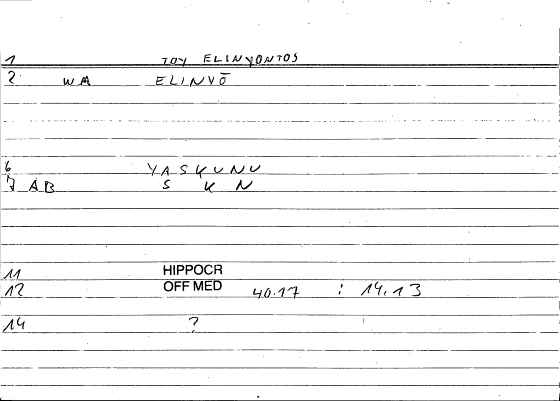 1 TOY ELINYONTOS
2 WA ELINYŌ
6 YASKUNU
7 AB S K N
11 HIPPOCR
12 OFF MED 40.17 : 14.13
14 ?